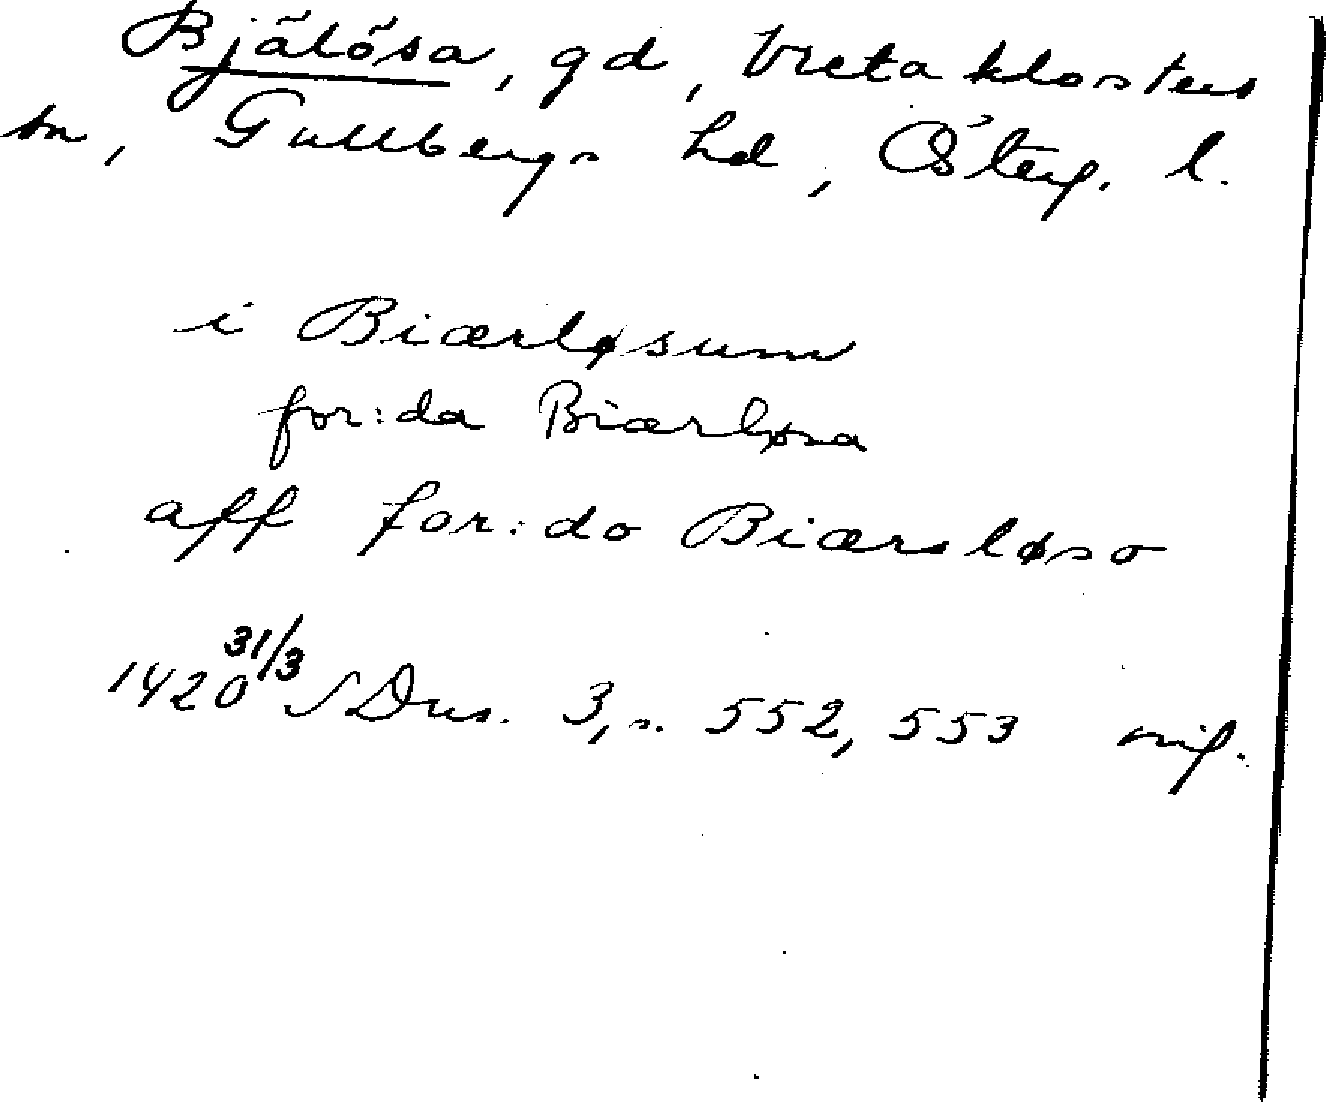 Bjälösa, gd, Vreta klosters
sn, Gullbergs hd, Österg. l.
i Biærløsum
for:da Biærløsa
aff for:do Biærsløso
1420 31/3 SDns. 3, s. 552, 553 orig.